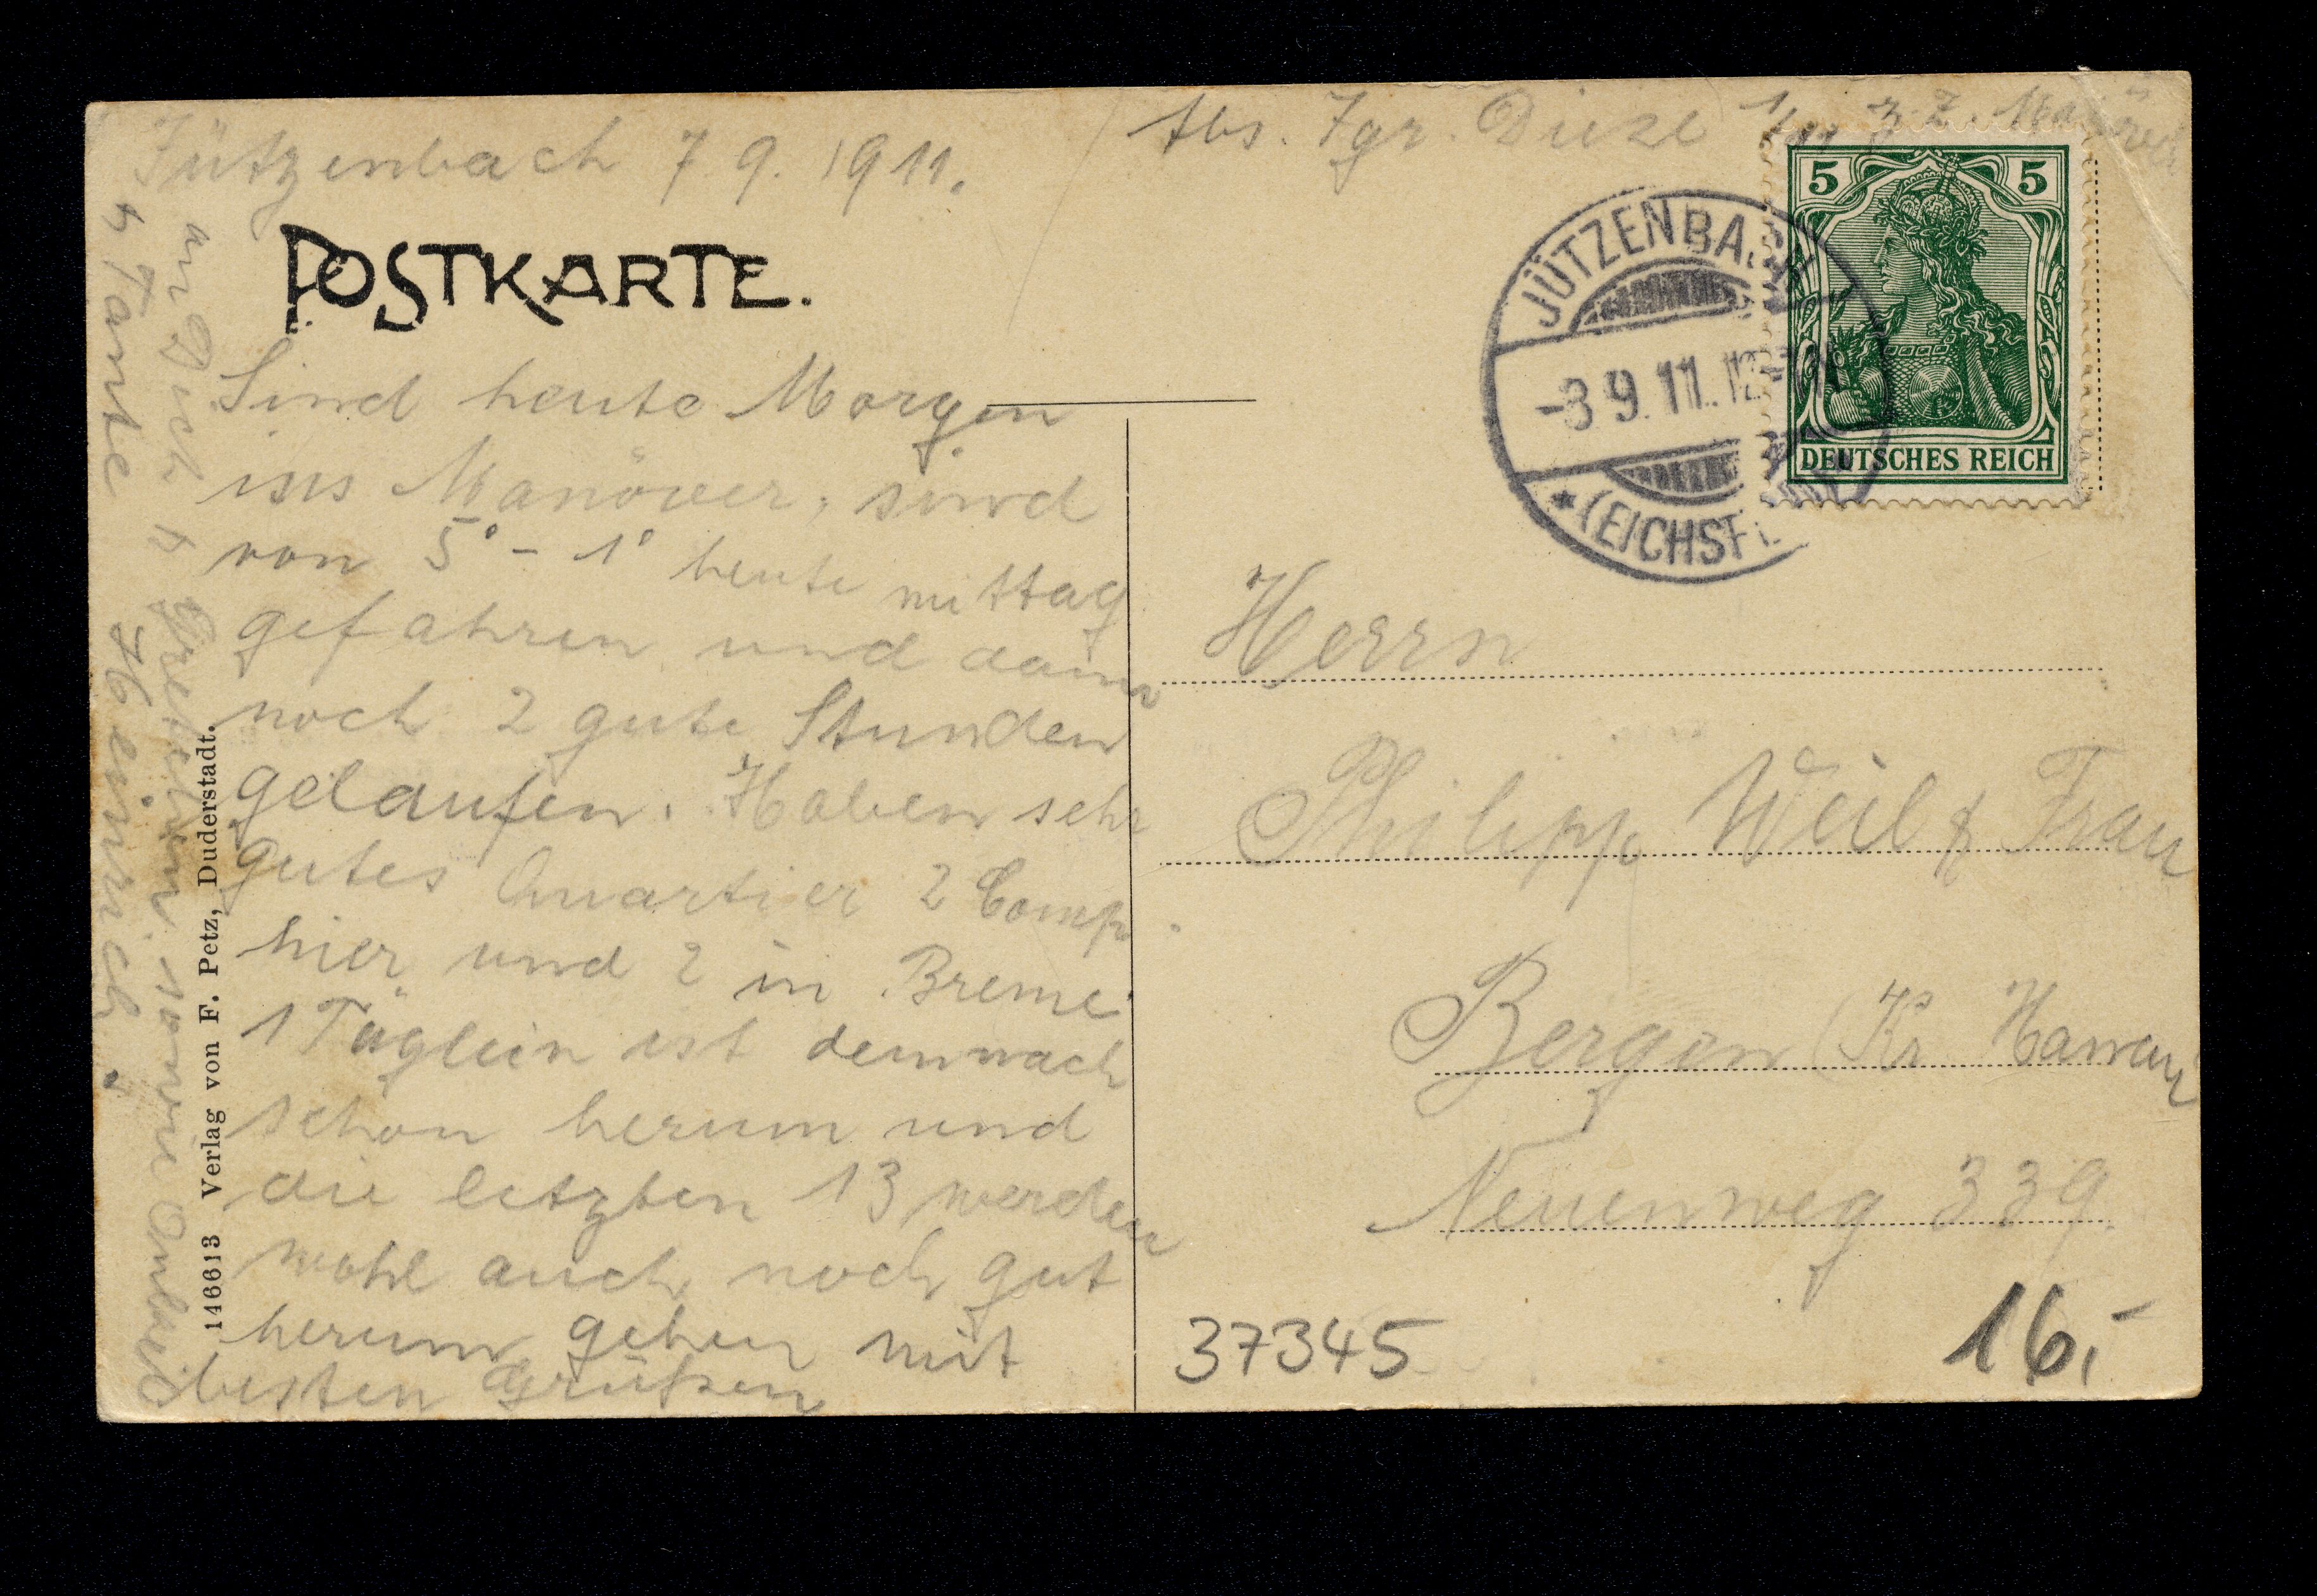 Jützenbach 7.9.1911.
Abs. Jgr. Dieze 1/11 z. Z. Manöver
POSTKARTE.
Sind heute Morgen
ins Manöver, sind
von 5° - 1° heute mittag
gefahren und dann
noch 2 gute Stunden
gelaufen. Haben sehr
gutes Quartier 2 Comp.
hier und 2 in Breme
1 Täglein ist demnach
schon herum und
die letzten 13 werden
wohl auch noch gut
herum gehen mit
besten Grüßen
an Dich & Gretchen sowie Onkel
& Tante Heinrich.
146613 Verlag von F. Petz, Duderstadt.
JÜTZENBACH
-8 9.11. 12-
* (EICHSF
5 5
DEUTSCHES REICH
Herrn
Philipp Weil & Frau
Bergen (Kr Hanau)
Neuenweg 339.
37345
16,-